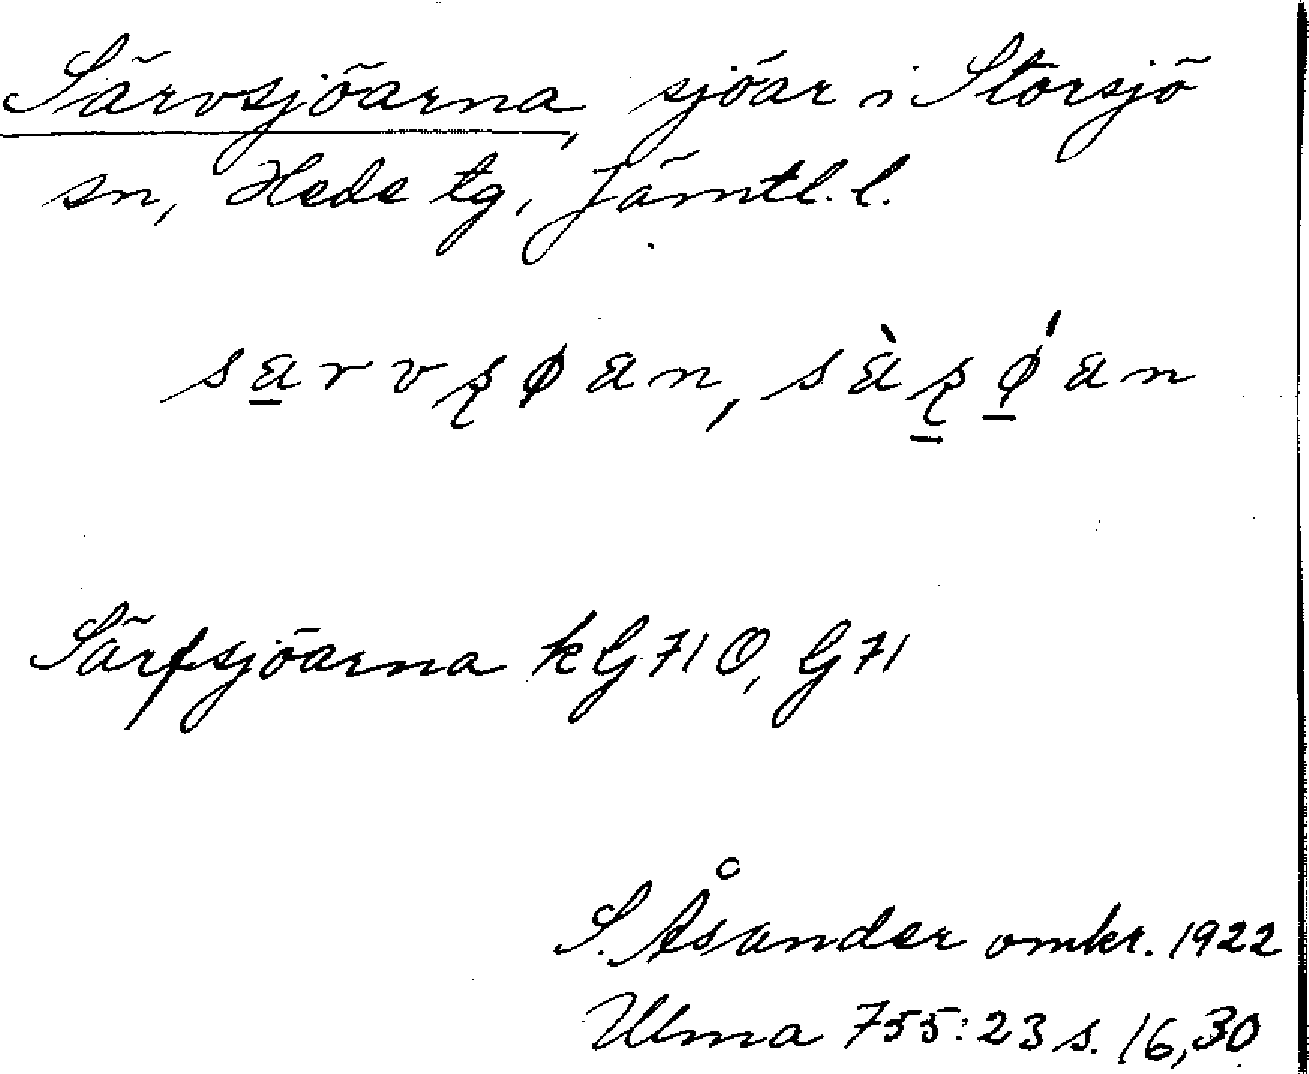 Särvsjöarna, sjöar i Storsjö
sn, Hede tg, Jämtl. l.
sa̲rvʂøan, sàʂ̲ǿ̲an
Särfsjöarna kG71Ö, G71
S. Åsander omkr. 1922
Ulma 755:23 s. 16,30